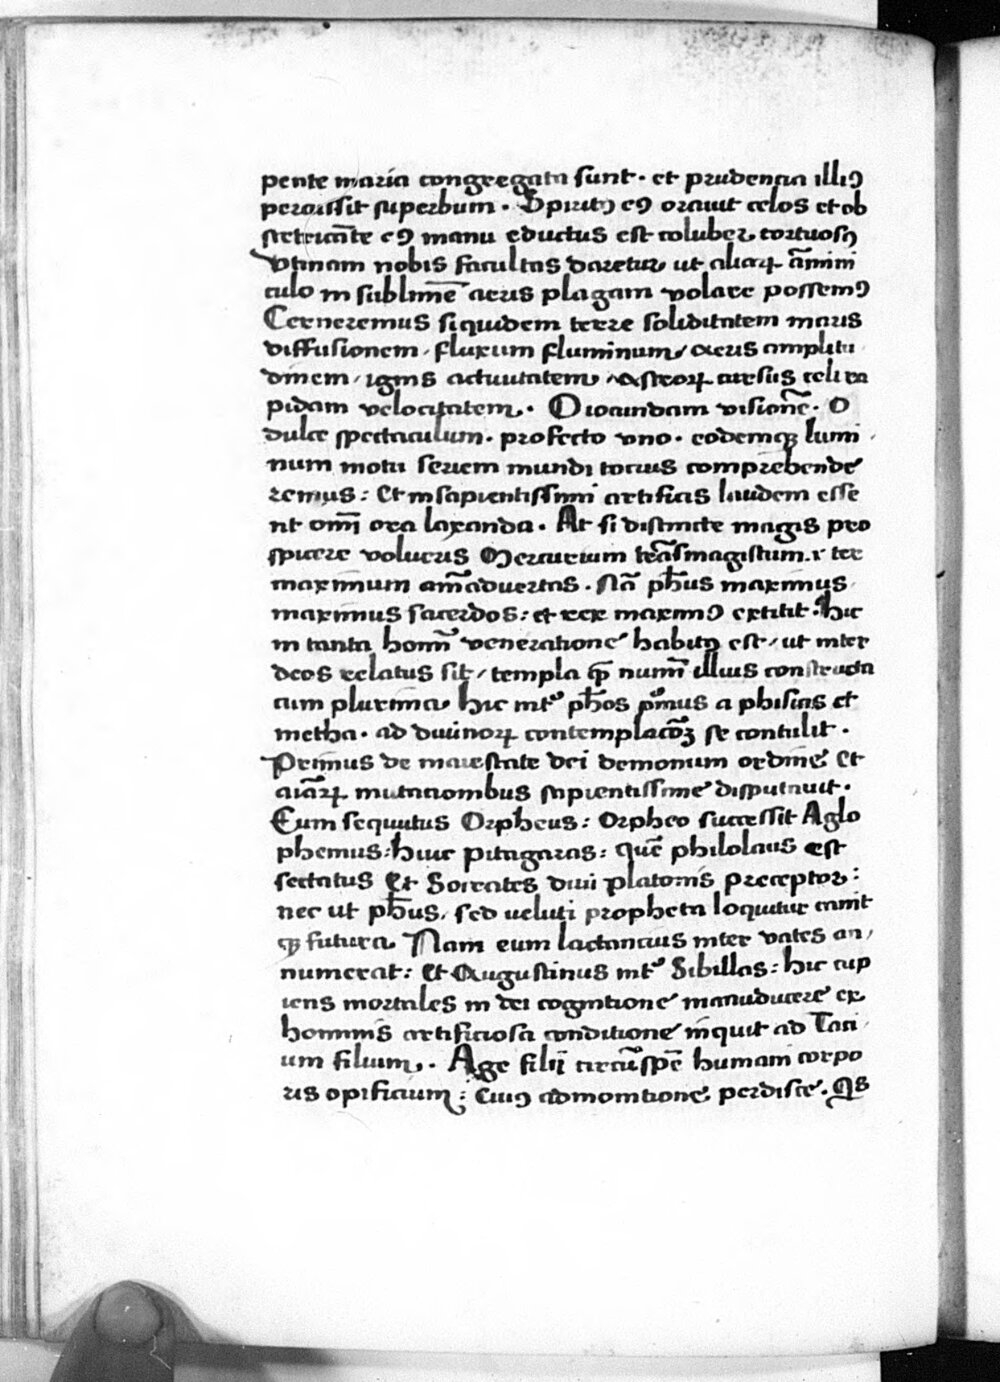 pente maria congregata sunt · et prudencia illiꝰ
percussit superbum · Spiritꝰ eꝰ orauit celos et ob
stetricāte eꝰ manu eductus est coluber tortuosꝰ
Vtinam nobis facultas daretur ut aliarꝝ āmini
culo in sublime aeris plagam volare possemꝰ
Cerneremus siquidem terre soliditatem maris
diffusionem / fluxum fluminum / aeris amplitu
dinem / ignis acuitatem / Astrorꝝ cursus celi ra
pidam velocitatem · O iocundam visionē · O
dulce spectaculum · profecto vno · eodemqꝫ lumi
num motu seriem mundi tocius comprehende
remus : Et in sapientissimi artificis laudem esse
nt omī ora laxanda · At si distincte magis pro
spicere volueris Mercurium trāsmagistum · r ter
maximum aīaduertas · Nā pħus maximus
maximus sacerdos : et rex maximꝰ extitit · hic
in tanta homīn veneratione habitꝰ est / ut inter
deos relatus sit / templa qꝫ numī illius constructa
cum plurima hic intᵉ pħos pͥmus a phisicis et
metha · ad diuinorꝝ contemplacōꝫ se contulit ·
Primus de maiestate dei demonum ordine Et
aīarꝝ mutacionibus sapientissime disputauit ·
Eum sequutus Orpheus : Orpheo successit Aglo
phemus : huic pitagoras : quē philolaus est
sectatus Et Socrates diui platonis preceptor :
nec ut pħus / sed ueluti propheta loquitur canit
qꝫ futura Nam eum lactancius inter vates an /
numerat : Et Augustinus intᵉ Sibillas : hic cup
iens mortales in dei cognitione manuducere ex
hominis artificiosa conditione inquit ad Taci
um filium · Age filij circūspē humani corpo
ris opificium : Cuiꝰ admonitione perdisce · Qs